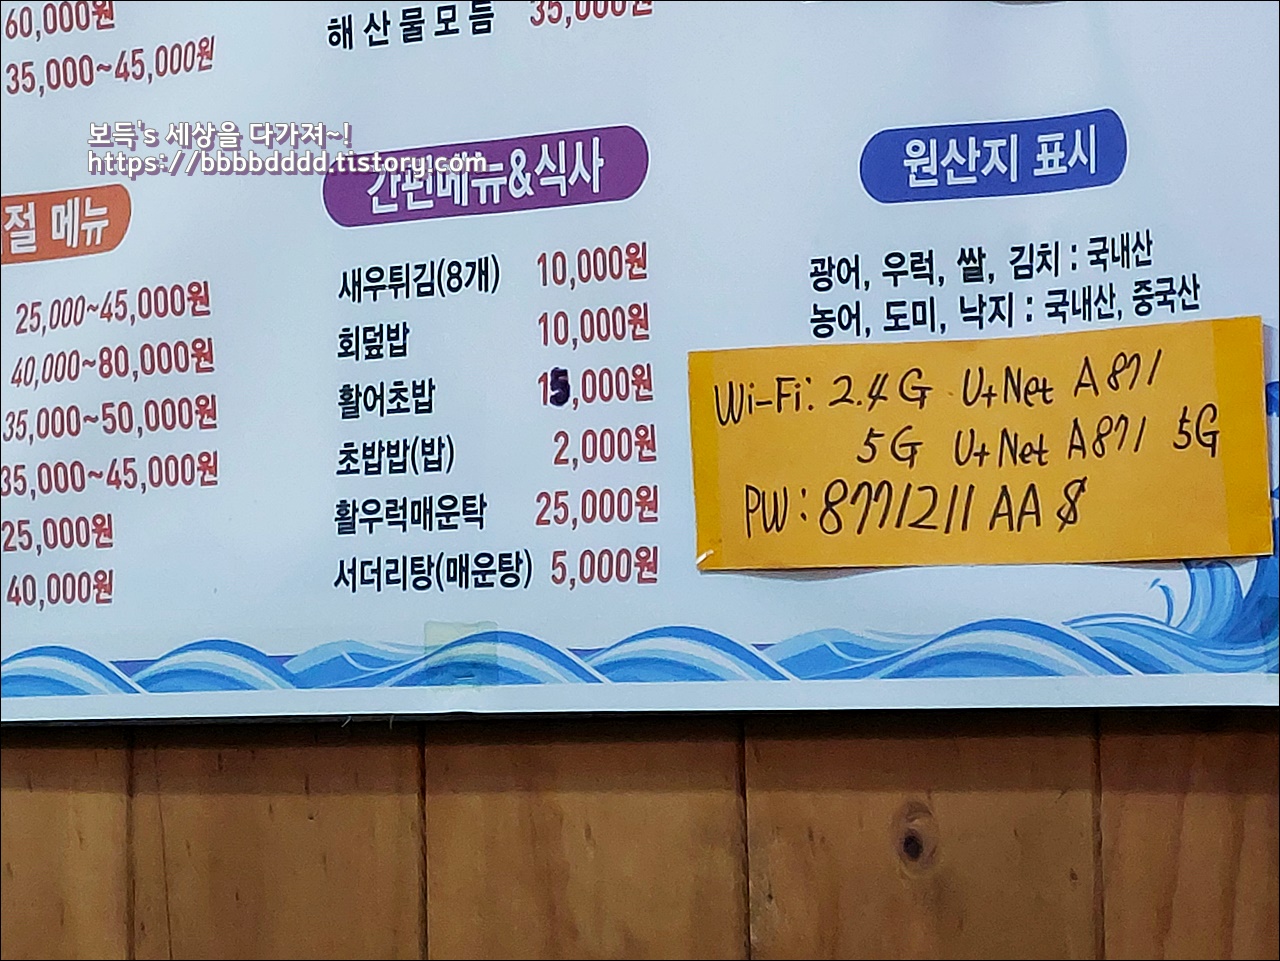 60,000원
35,000~45,000원
해산물모듬 35,000원
보득's 세상을 다가져~!
https://bbbbdddd.tistory.com
절 메뉴
25,000~45,000원
40,000~80,000원
35,000~50,000원
35,000~45,000원
25,000원
40,000원
간편메뉴&식사
새우튀김(8개) 10,000원
회덮밥 10,000원
활어초밥 15,000원
초밥밥(밥) 2,000원
활우럭매운탁 25,000원
서더리탕(매운탕) 5,000원
원산지 표시
광어, 우럭, 쌀, 김치 : 국내산
농어, 도미, 낙지 : 국내산, 중국산
Wi-Fi: 2.4G U+Net A871
5G U+Net A871 5G
PW: 8771211AA$